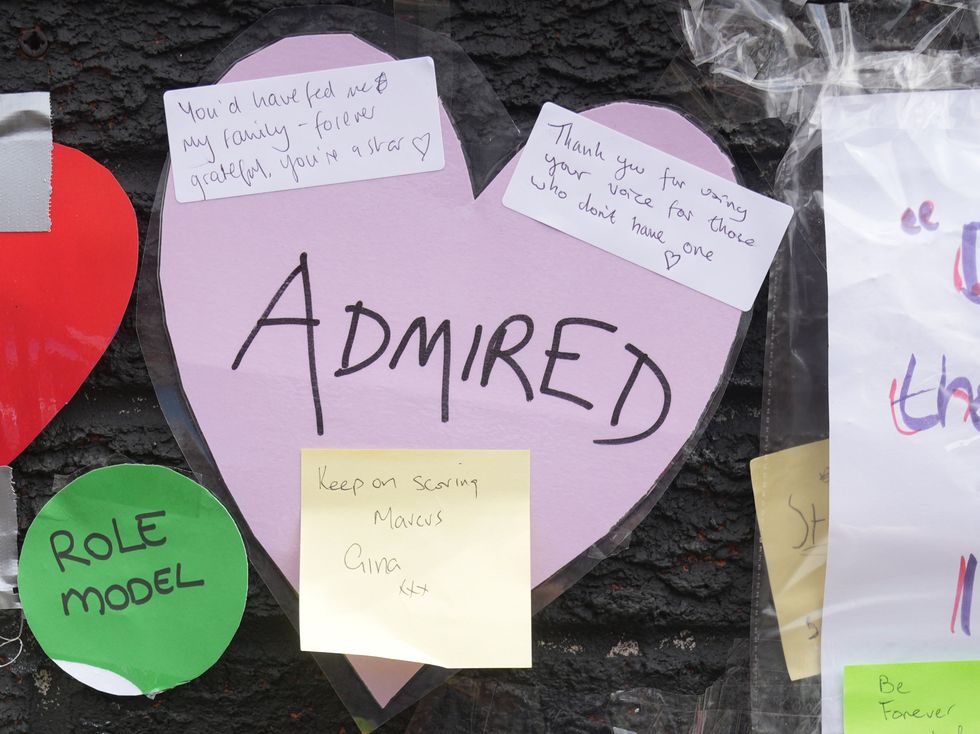 You'd have fed me &
my family - forever
grateful, you're a star ♡
Thank you for using
your voice for those
who don't have one
♡
ADMIRED
Keep on scoring
Marcus
Gina
xxx
ROLE
MODEL
“
the
St
Be
Forever